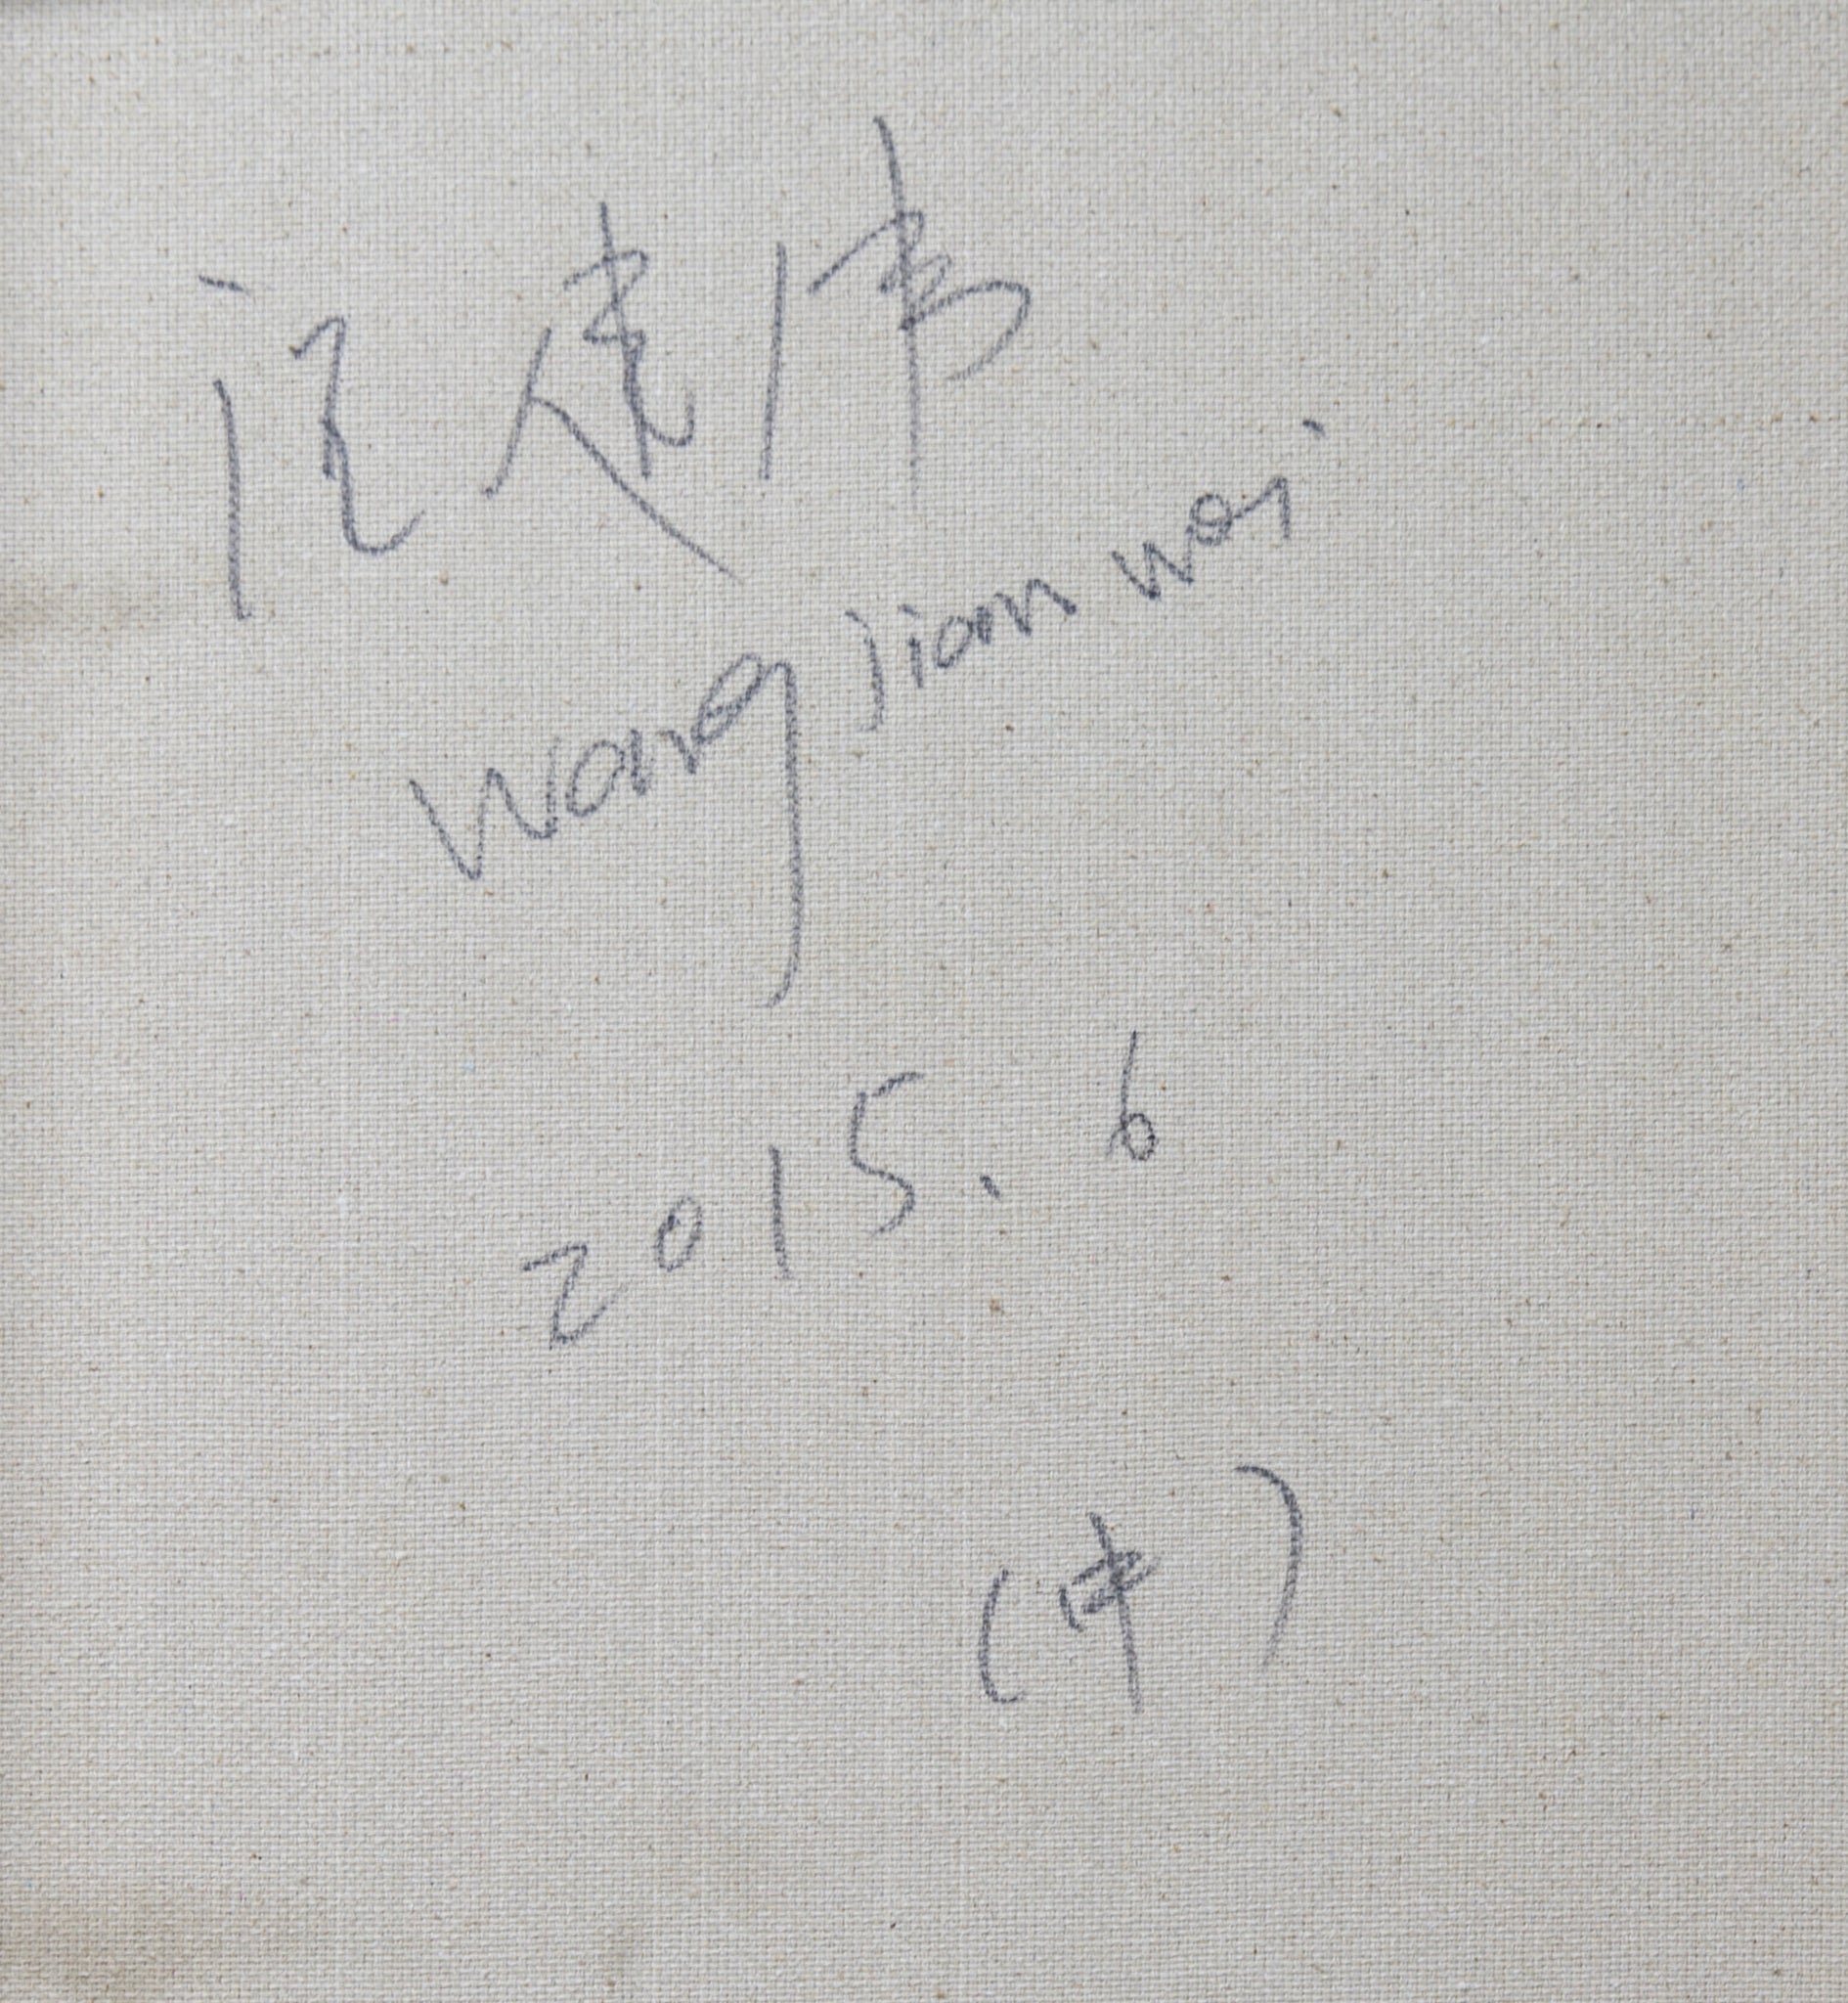 汪建伟
Wang Jian wei
2015.6
(中)